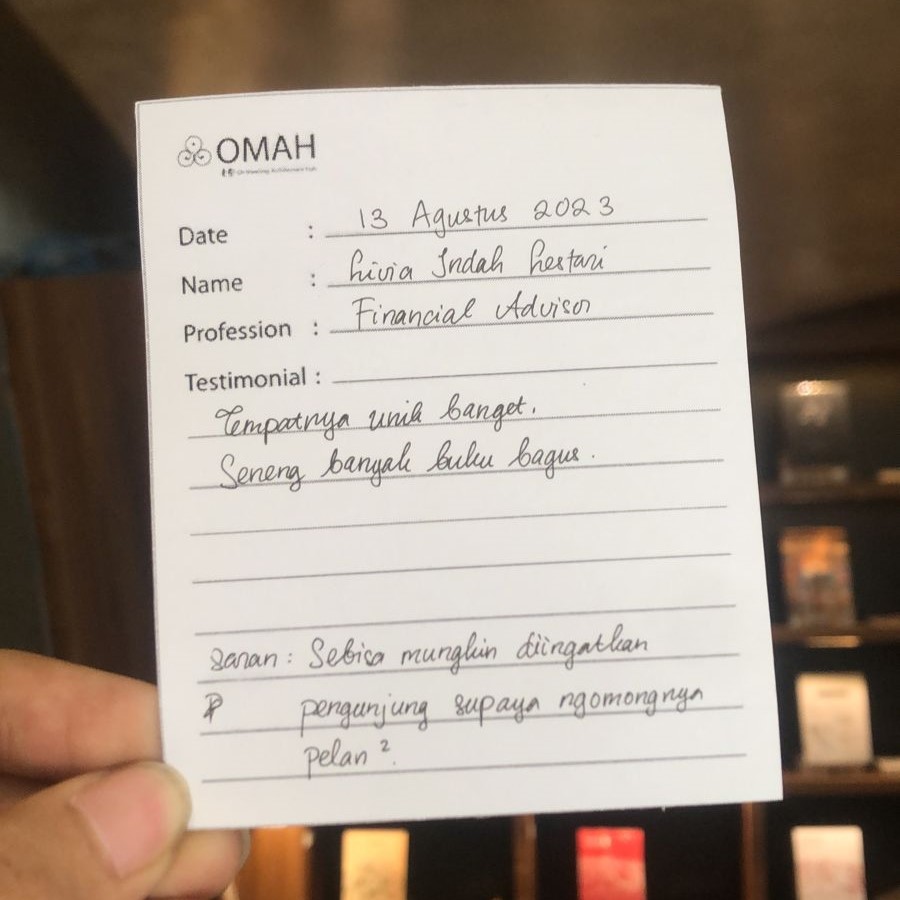 OMAH
Date : 13 Agustus 2023
Name : Livia Indah Lestari
Profession : Financial Advisor
Testimonial :
Tempatnya unik banget.
Seneng banyak buku bagus.
saran : Sebisa mungkin diingatkan
pengunjung supaya ngomongnya
pelan².